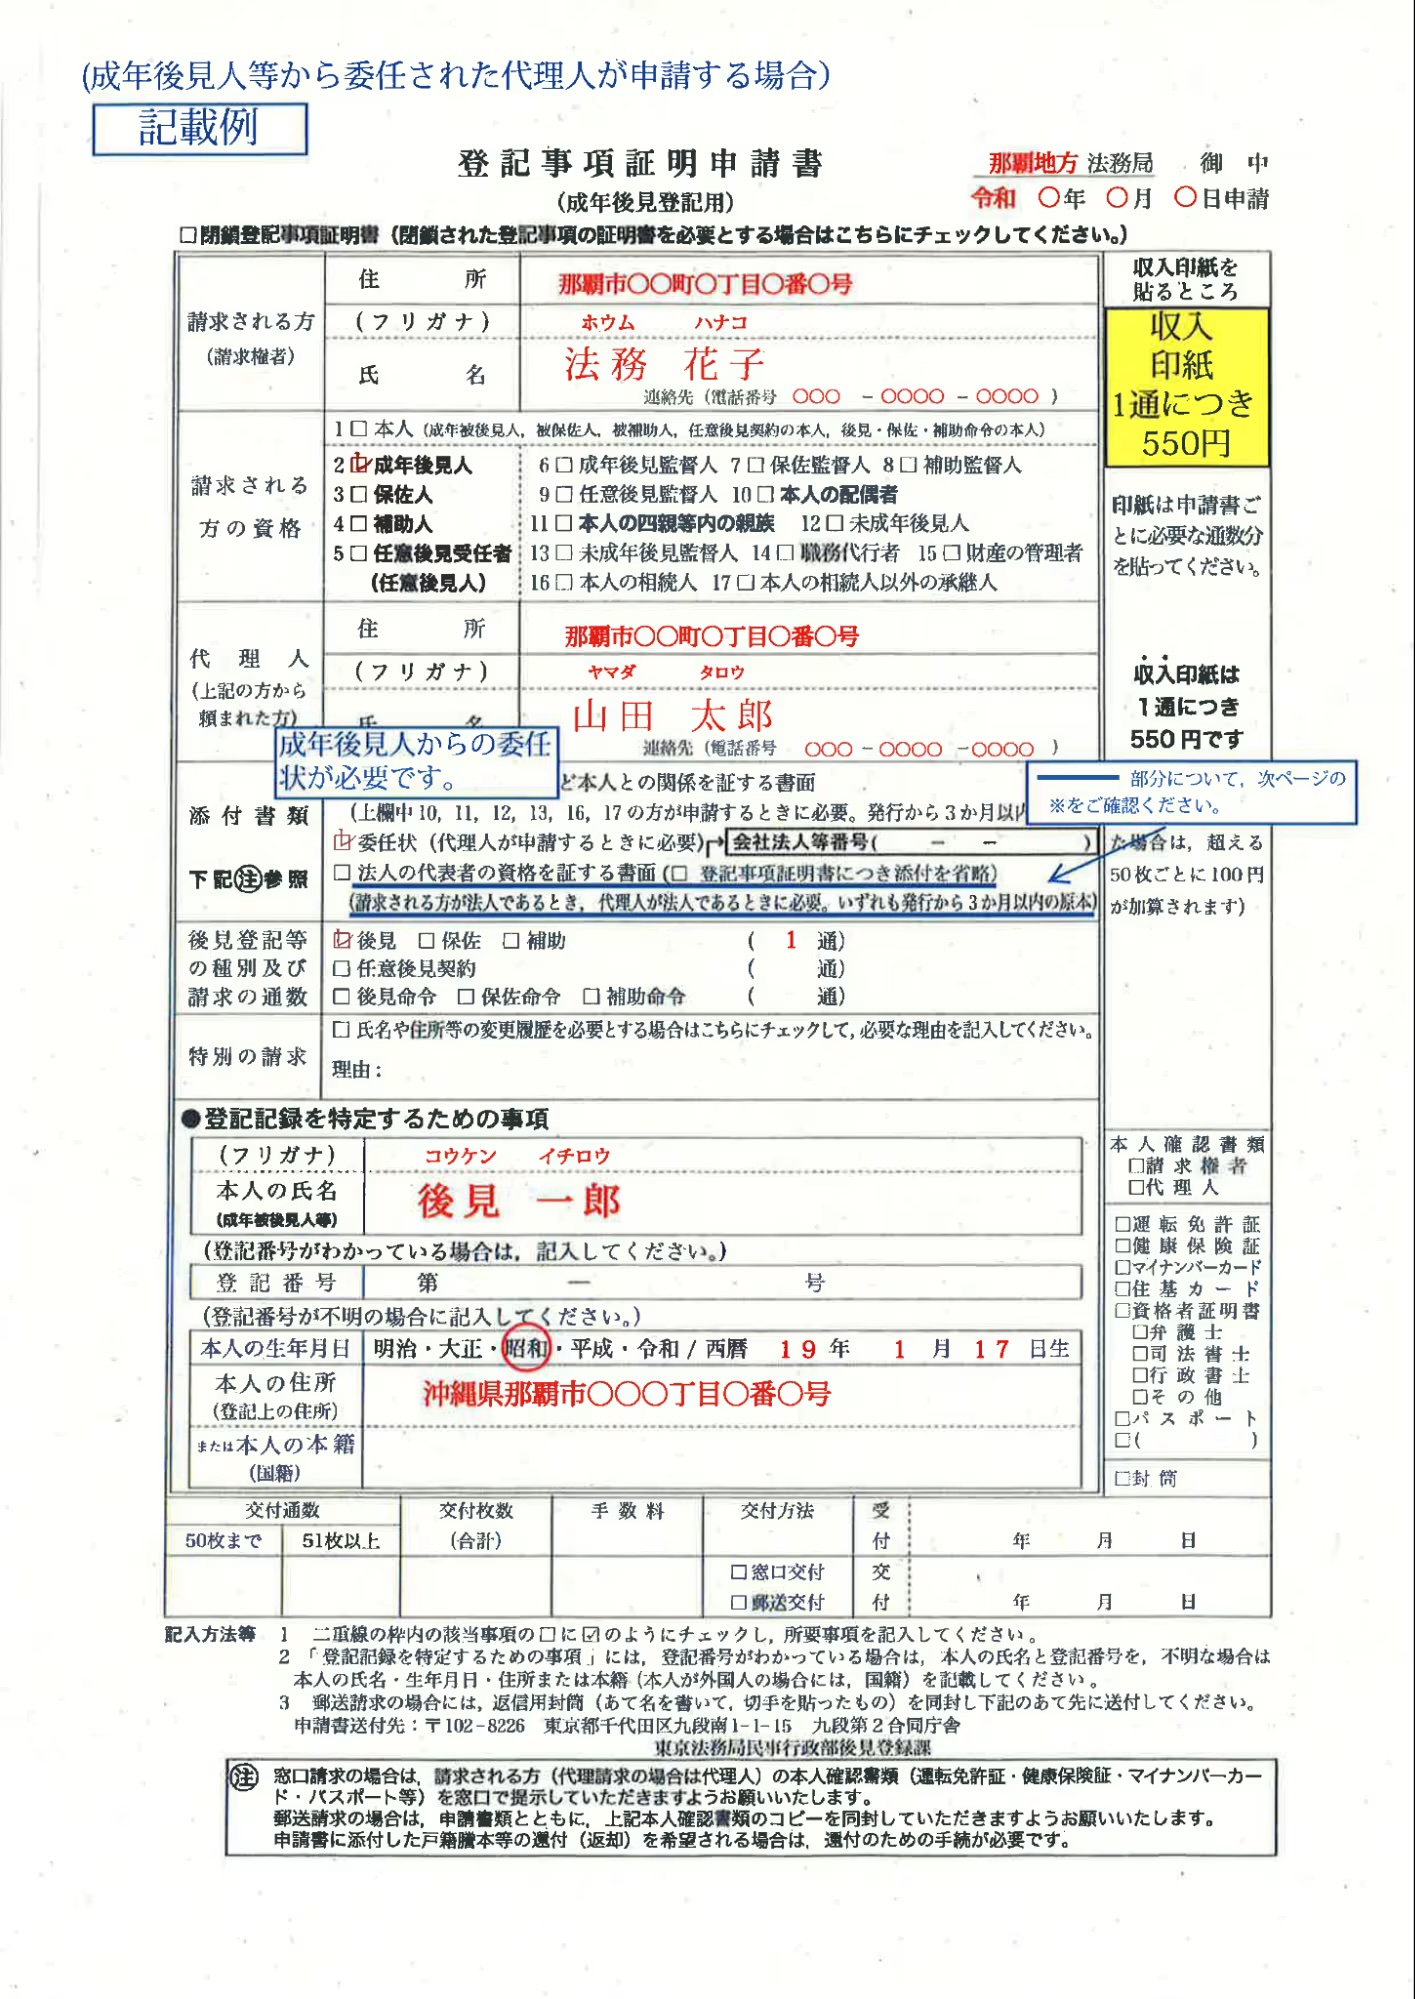 (成年後見人等から委任された代理人が申請する場合)
記載例
登記事項証明申請書
(成年後見登記用)
那覇地方 法務局 御中
令和 〇年 〇月 〇日申請
□閉鎖登記事項証明書(閉鎖された登記事項の証明書を必要とする場合はこちらにチェックしてください。)
請求される方
(請求権者)
住 所
那覇市〇〇町〇丁目〇番〇号
(フリガナ)
ホウム ハナコ
氏 名
法務 花子
連絡先(電話番号 〇〇〇 - 〇〇〇〇 - 〇〇〇〇 )
収入印紙を
貼るところ
収入
印紙
1通につき
550円
印紙は申請書ご
とに必要な通数分
を貼ってください。
請求される
方の資格
1□本人(成年被後見人,被保佐人,被補助人,任意後見契約の本人,後見・保佐・補助命令の本人)
2☑成年後見人
3□保佐人
4□補助人
5□任意後見受任者
(任意後見人)
6□成年後見監督人 7□保佐監督人 8□補助監督人
9□任意後見監督人 10□本人の配偶者
11□本人の四親等内の親族 12□未成年後見人
13□未成年後見監督人 14□職務代行者 15□財産の管理者
16□本人の相続人 17□本人の相続人以外の承継人
代理人
(上記の方から
頼まれた方)
住 所
那覇市〇〇町〇丁目〇番〇号
(フリガナ)
ヤマダ タロウ
氏 名
山田 太郎
連絡先(電話番号 〇〇〇 - 〇〇〇〇 - 〇〇〇〇 )
収入印紙は
1通につき
550円です
成年後見人からの委任
状が必要です。
部分について,次ページの
※をご確認ください。
添付書類
下記㊟参照
ど本人との関係を証する書面
(上欄中10,11,12,13,16,17の方が申請するときに必要。発行から3か月以内
☑委任状(代理人が申請するときに必要)→会社法人等番号( - - )
□法人の代表者の資格を証する書面(□ 登記事項証明書につき添付を省略)
(請求される方が法人であるとき,代理人が法人であるときに必要。いずれも発行から3か月以内の原本)
た場合は,超える
50枚ごとに100円
が加算されます)
後見登記等
の種別及び
請求の通数
☑後見 □保佐 □補助 ( 1 通)
□任意後見契約 ( 通)
□後見命令 □保佐命令 □補助命令 ( 通)
特別の請求
□氏名や住所等の変更履歴を必要とする場合はこちらにチェックして,必要な理由を記入してください。
理由:
●登記記録を特定するための事項
(フリガナ)
コウケン イチロウ
本人の氏名
(成年被後見人等)
後見 一郎
(登記番号がわかっている場合は,記入してください。)
登記番号 第 — 号
(登記番号が不明の場合に記入してください。)
本人の生年月日 明治・大正・昭和・平成・令和/西暦 19年 1月 17日生
本人の住所
(登記上の住所)
沖縄県那覇市〇〇〇丁目〇番〇号
または本人の本籍
(国籍)
本人確認書類
□請求権者
□代理人
□運転免許証
□健康保険証
□マイナンバーカード
□住基カード
□資格者証明書
□弁護士
□司法書士
□行政書士
□その他
□パスポート
□( )
□封筒
交付通数 交付枚数 手数料 交付方法 受
50枚まで 51枚以上 (合計) 付 年 月 日
□窓口交付 交
□郵送交付 付 年 月 日
記入方法等 1 二重線の枠内の該当事項の□に☑のようにチェックし,所要事項を記入してください。
2 「登記記録を特定するための事項」には,登記番号がわかっている場合は,本人の氏名と登記番号を,不明な場合は
本人の氏名・生年月日・住所または本籍(本人が外国人の場合には,国籍)を記載してください。
3 郵送請求の場合には,返信用封筒(あて名を書いて,切手を貼ったもの)を同封し下記のあて先に送付してください。
申請書送付先:〒102-8226 東京都千代田区九段南1-1-15 九段第2合同庁舎
東京法務局民事行政部後見登録課
㊟ 窓口請求の場合は,請求される方(代理請求の場合は代理人)の本人確認書類(運転免許証・健康保険証・マイナンバーカー
ド・パスポート等)を窓口で提示していただきますようお願いいたします。
郵送請求の場合は,申請書類とともに,上記本人確認書類のコピーを同封していただきますようお願いいたします。
申請書に添付した戸籍謄本等の還付(返却)を希望される場合は,還付のための手続が必要です。